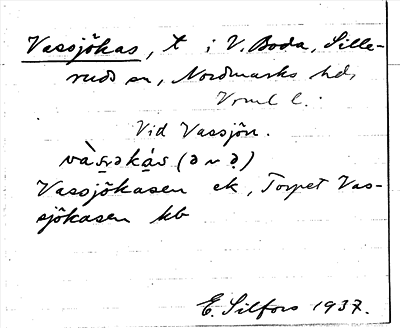 Vassjökas, t i V. Boda, Sille-
ruds sn, Nordmarks hd,
Vrml l.
Vid Vassjön.
vàsəkás (ə ~ ə̣)
Vassjökasen ek, Torpet Vas-
sjökasen kb
E. Silfors 1937.